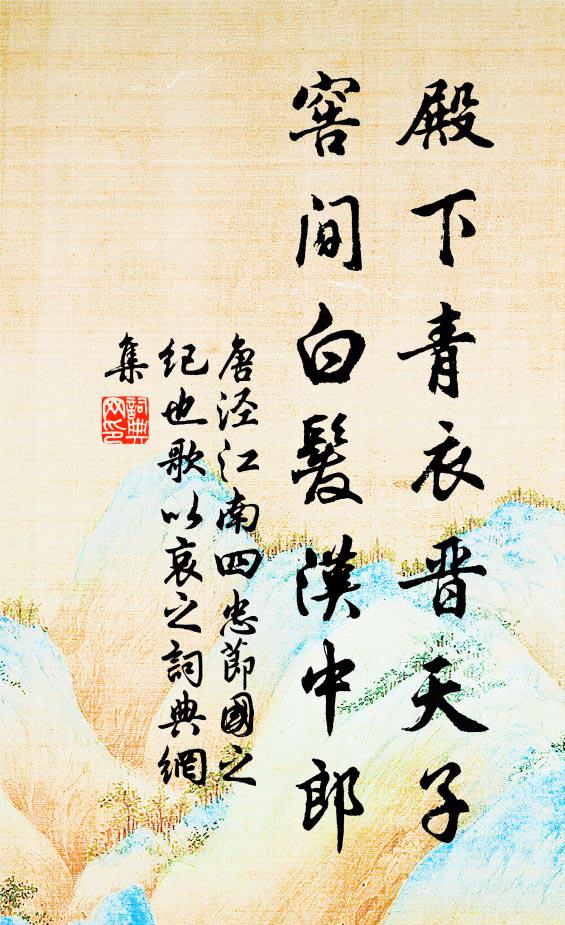 殿下青衣晋天子
窖間白髮漢中郎
唐泾江南四忠節國之
紀也歌以哀之詞典網
集
詞典
网印